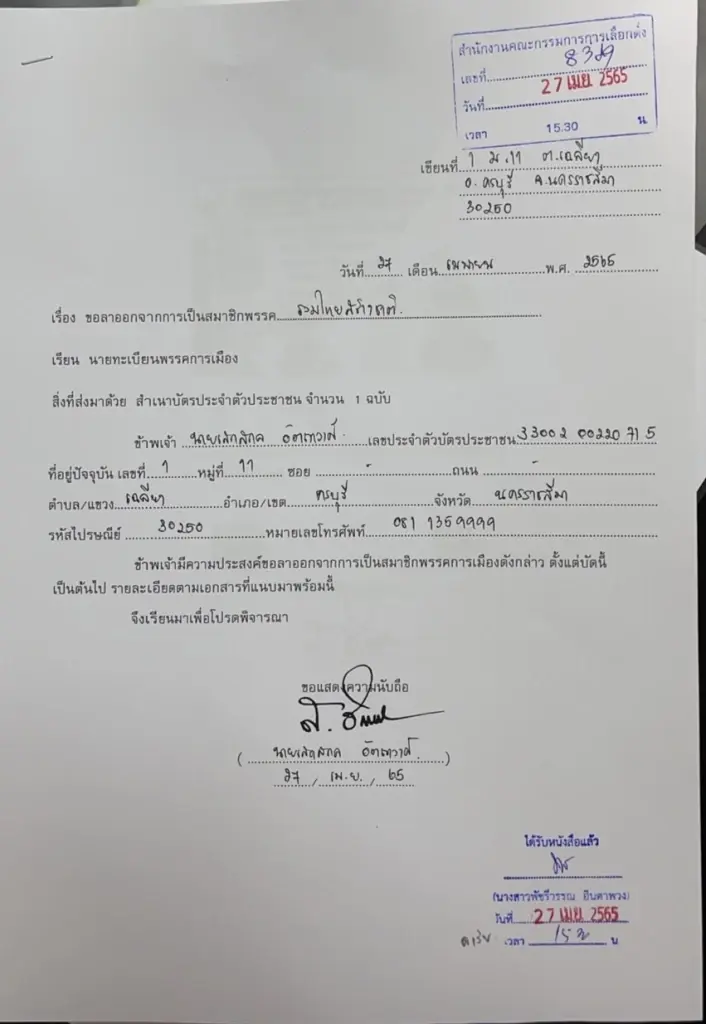 สำนักงานคณะกรรมการการเลือกตั้ง
เลขที่
วันที่ 27 เม.ย. 2565
เวลา 15.30 น
เขียนที่ 1 ม.11 ต.เฉลียง
อ. ครบุรี จ.นครราชสีมา
30250
วันที่ 27 เดือน เมษายน พ.ศ. 2565
เรื่อง ขอลาออกจากการเป็นสมาชิกพรรค
เรียน นายทะเบียนพรรคการเมือง
สิ่งที่ส่งมาด้วย สำเนาบัตรประจำตัวประชาชน จำนวน 1 ฉบับ
ข้าพเจ้า เลขประจำตัวบัตรประชาชน 33002 00220 71 5
ที่อยู่ปัจจุบัน เลขที่ 1 หมู่ที่ 11 ซอย - ถนน -
ตำบล/แขวง เฉลียง อำเภอ/เขต ครบุรี จังหวัด นครราชสีมา
รหัสไปรษณีย์ 30250 หมายเลขโทรศัพท์ 081 1359999
ข้าพเจ้ามีความประสงค์ขอลาออกจากการเป็นสมาชิกพรรคการเมืองดังกล่าว ตั้งแต่บัดนี้
เป็นต้นไป รายละเอียดตามเอกสารที่แนบมาพร้อมนี้
จึงเรียนมาเพื่อโปรดพิจารณา
ขอแสดงความนับถือ
27 / เม.ย. / 65
ได้รับหนังสือแล้ว
(นางสาวพัชรีวรรณ อินตาพวง)
วันที่ 27 เม.ย. 2565
เวลา น